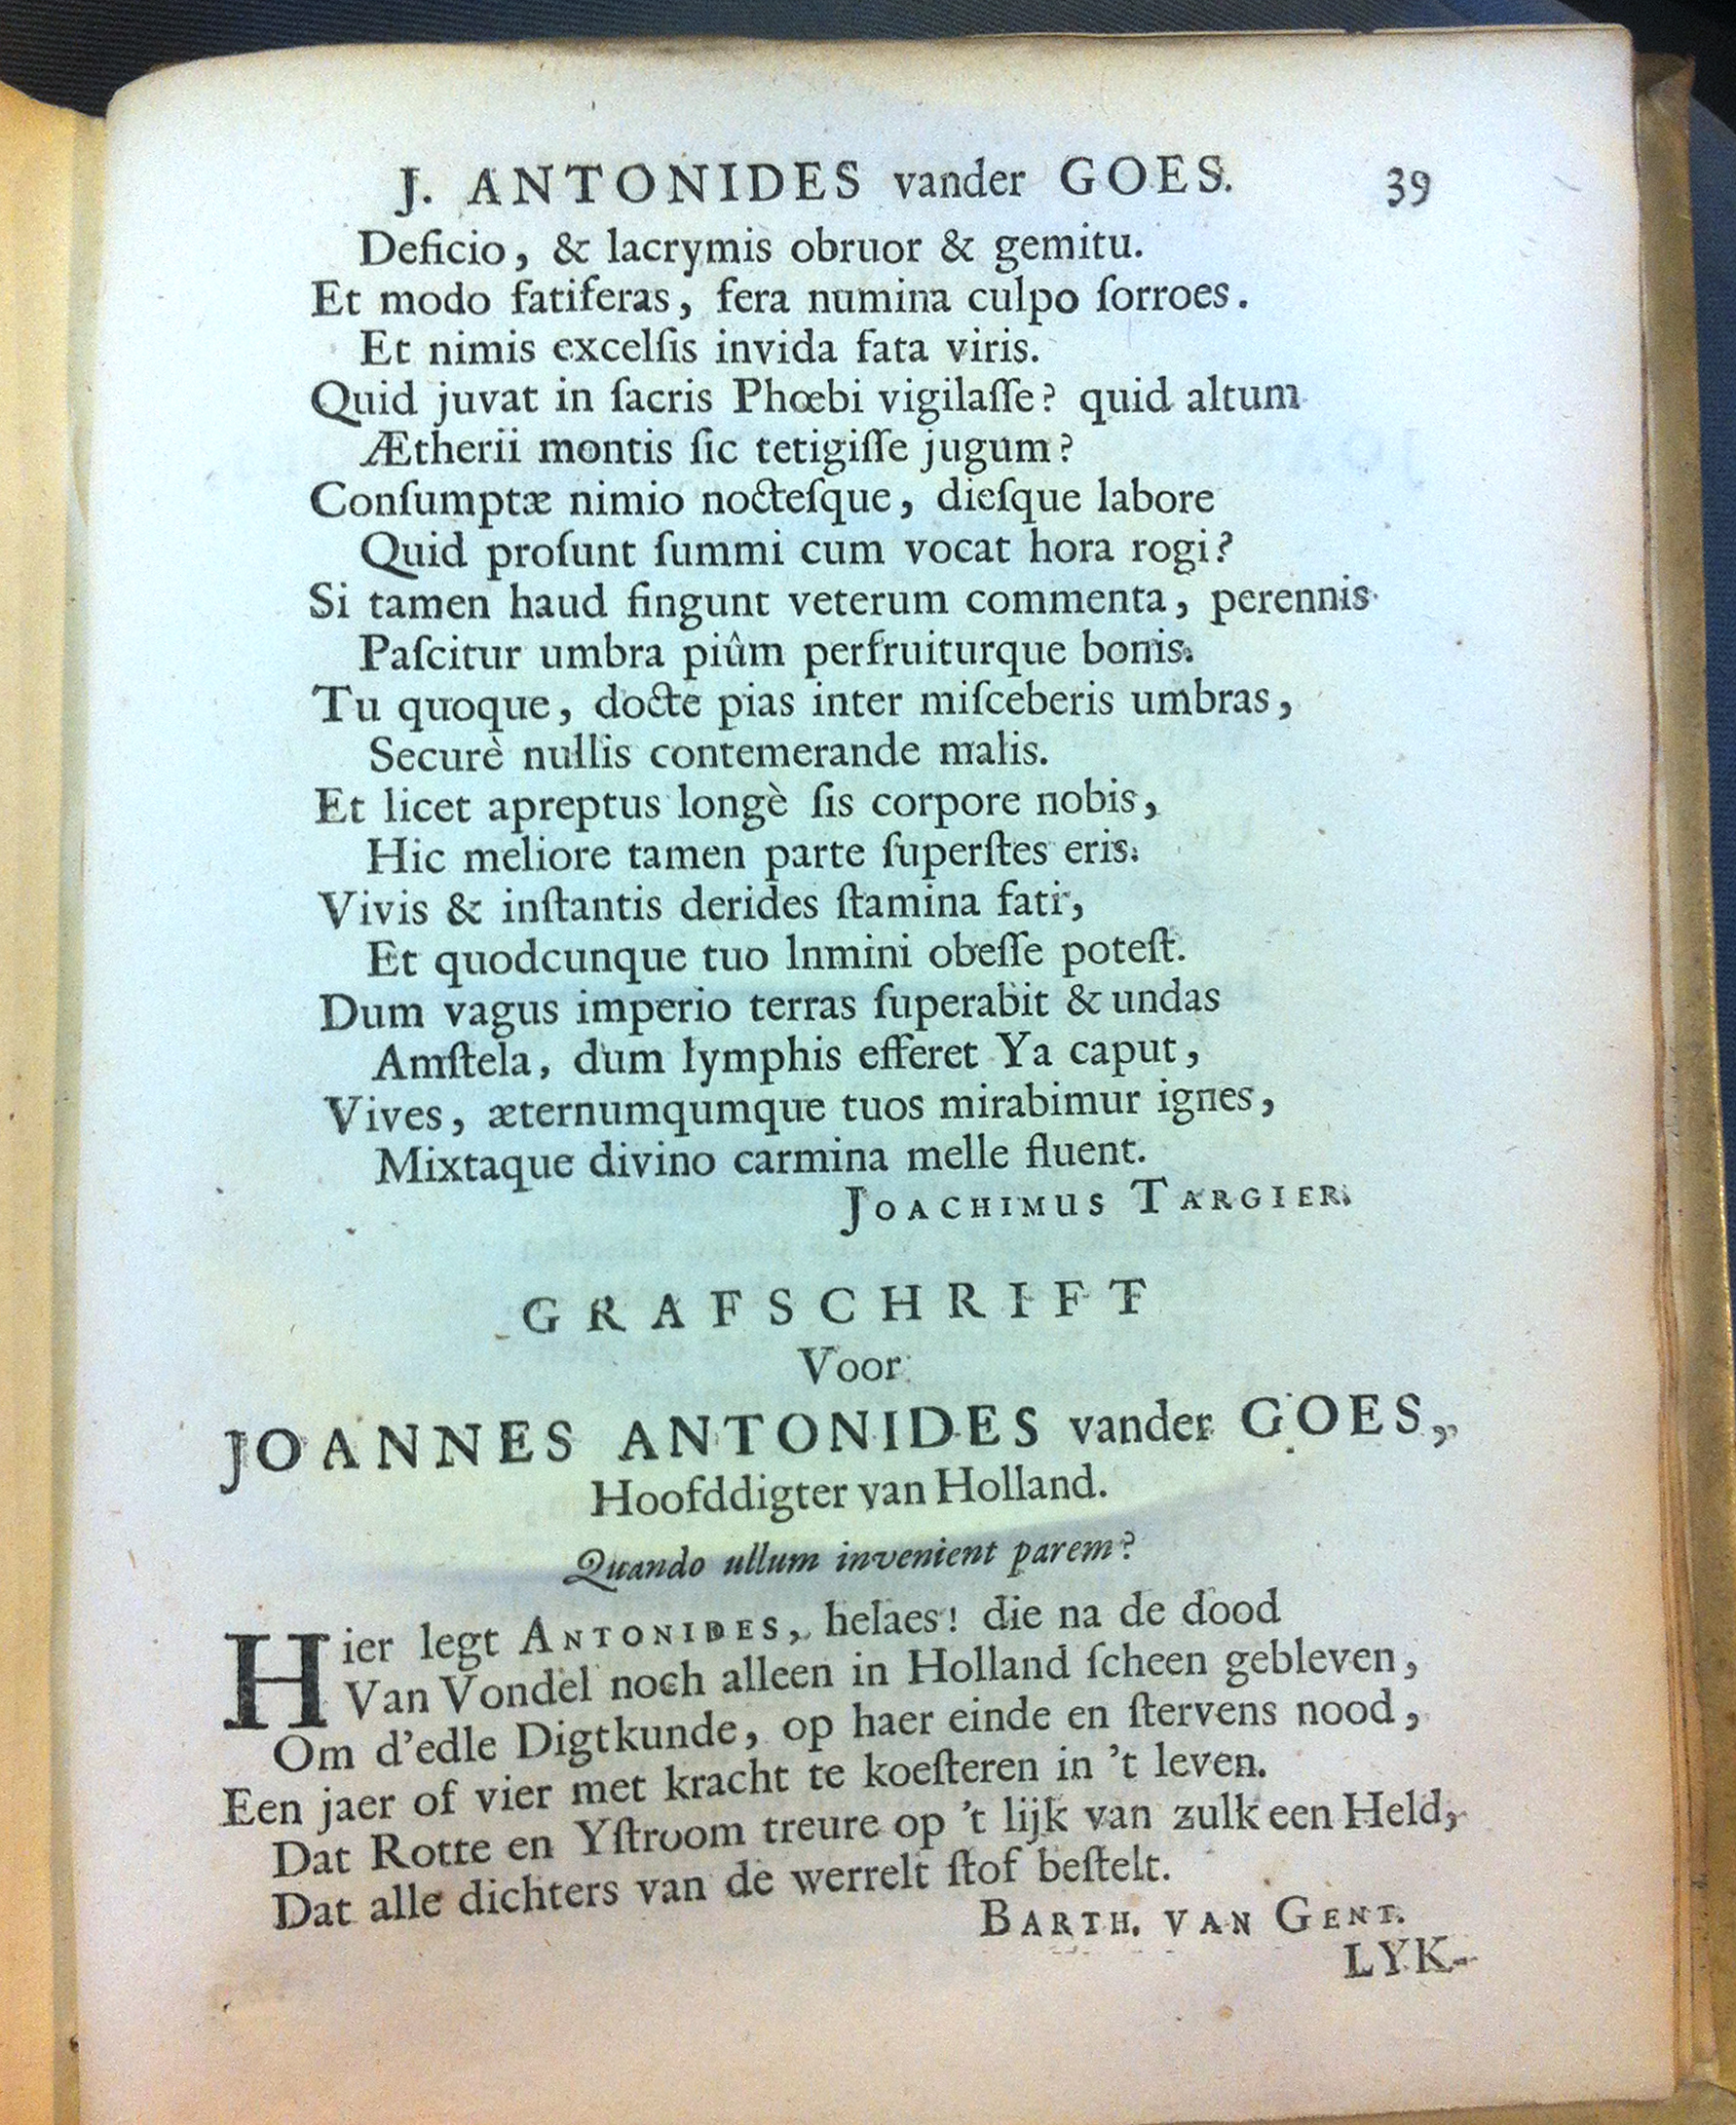 J. ANTONIDES vander GOES. 39
Deficio, & lacrymis obruor & gemitu.
Et modo fatiferas, fera numina culpo ſorroes.
Et nimis excelſis invida fata viris.
Quid juvat in ſacris Phœbi vigilaſſe? quid altum
Ætherii montis ſic tetigiſſe jugum?
Conſumptæ nimio nocteſque, dieſque labore
Quid proſunt ſummi cum vocat hora rogi?
Si tamen haud fingunt veterum commenta, perennis
Paſcitur umbra piûm perfruiturque bonis.
Tu quoque, docte pias inter miſceberis umbras,
Securè nullis contemerande malis.
Et licet apreptus longè ſis corpore nobis,
Hic meliore tamen parte ſuperſtes eris.
Vivis & inſtantis derides ſtamina fati,
Et quodcunque tuo lnmini obeſſe poteſt.
Dum vagus imperio terras ſuperabit & undas
Amſtela, dum lymphis efferet Ya caput,
Vives, æternumqumque tuos mirabimur ignes,
Mixtaque divino carmina melle fluent.
JOACHIMUS TARGIER.
GRAFSCHRIFT
Voor
JOANNES ANTONIDES vander GOES,
Hoofddigter van Holland.
Quando ullum invenient parem?
Hier legt ANTONIDES, helaes! die na de dood
Van Vondel noch alleen in Holland ſcheen gebleven,
Om d'edle Digtkunde, op haer einde en ſtervens nood,
Een jaer of vier met kracht te koeſteren in 't leven.
Dat Rotte en Yſtroom treure op 't lijk van zulk een Held,
Dat alle dichters van de werrelt ſtof beſtelt.
BARTH. VAN GENT.
LYK-